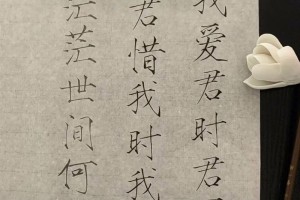 我爱君时君
君惜我时我
茫茫世间何